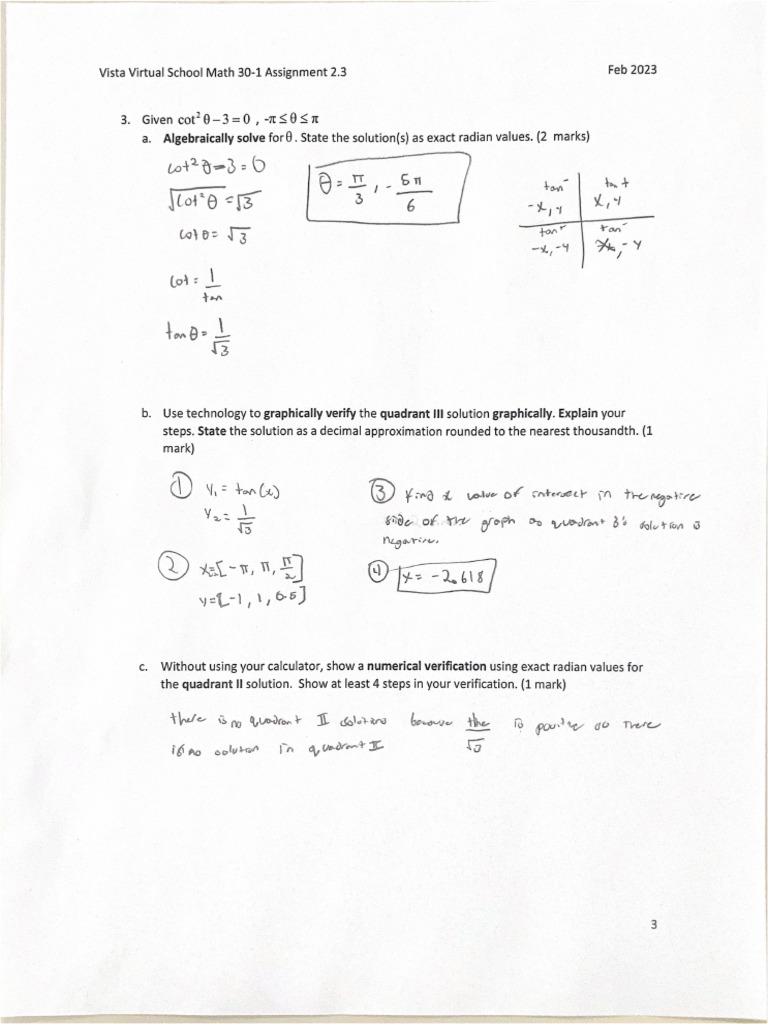 Vista Virtual School Math 30-1 Assignment 2.3 Feb 2023
3. Given cot² θ − 3 = 0 , -π ≤ θ ≤ π
a. Algebraically solve for θ. State the solution(s) as exact radian values. (2 marks)
cot² θ − 3 = 0
√cot² θ = √3
cot θ = √3
cot = 1/tan
tan θ = 1/√3
θ = π/3 , - 5π/6
tan⁻ tan +
-x, y x, y
tan⁺ tan⁻
-x, -y x, -y
b. Use technology to graphically verify the quadrant III solution graphically. Explain your
steps. State the solution as a decimal approximation rounded to the nearest thousandth. (1
mark)
① y₁ = tan(x)
y₂ = 1/√3
② x=[-π, π, π/2]
y=[-1, 1, 0.5]
③ find x value of intersect in the negative
side of the graph as quadrant 3's solution is
negative.
④ x = -2.618
c. Without using your calculator, show a numerical verification using exact radian values for
the quadrant II solution. Show at least 4 steps in your verification. (1 mark)
there is no quadrant II solutions because the √3 is positive so there
is no solution in quadrant II
3